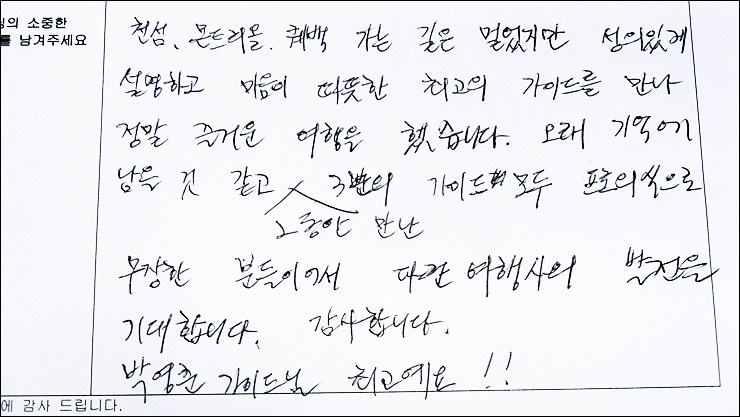 님의 소중한
를 남겨주세요
천섬, 몬트리올, 퀘백 가는 길은 멀었지만 성의있게
설명하고 마음이 따뜻한 최고의 가이드를 만나
정말 즐거운 여행을 했습니다. 오래 기억에
남을 것 같고 3번의 가이드 모두 프로의식으로
그동안 만난
무장한 분들이어서 여행사의 발전을
기대합니다. 감사합니다.
박영준 가이드님 최고예요 !!
에 감사 드립니다.